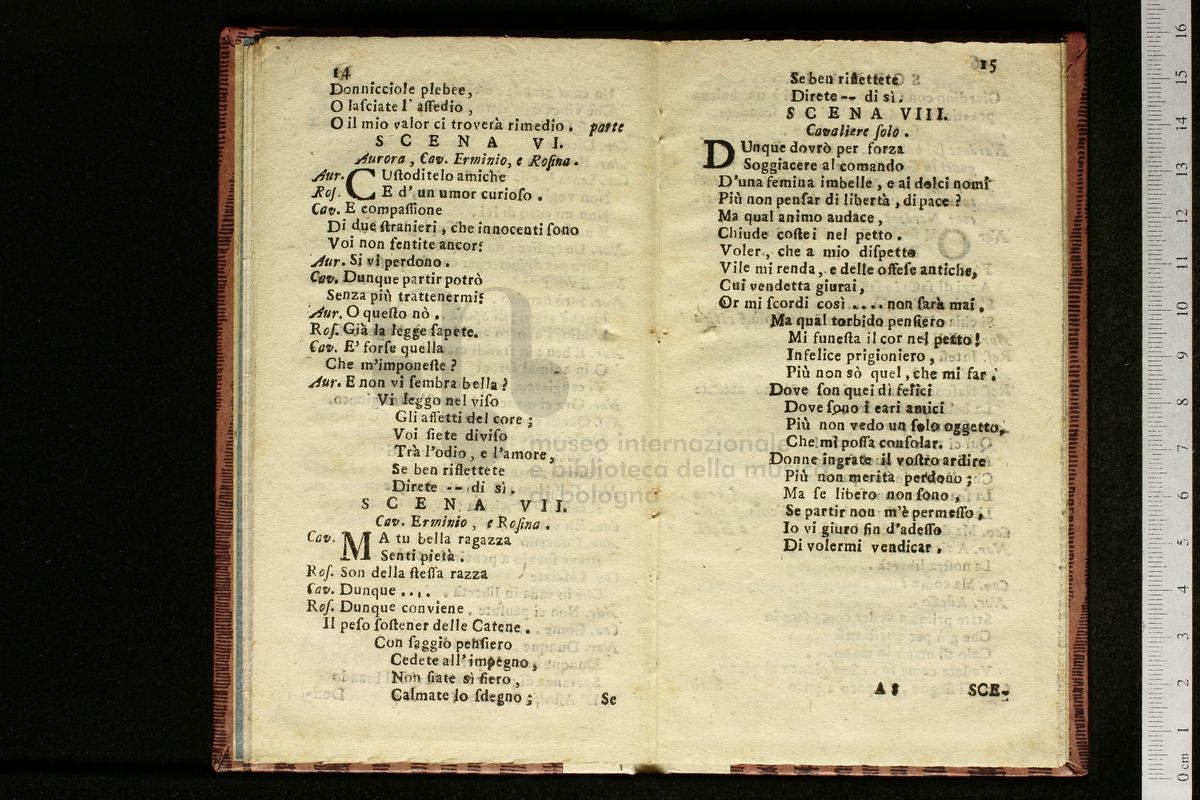 14
Donnicciole plebee,
O lasciate l' assedio,
O il mio valor ci troverà rimedio. parte
SCENA VI.
Aurora, Cav. Erminio, e Rosina.
Aur. CUstoditelo amiche
Ros. E d' un umor curioso.
Cav. E compassione
Di due stranieri, che innocenti sono
Voi non sentite ancor?
Aur. Si vi perdono.
Cav. Dunque partir potrò
Senza più trattenermi?
Aur. O questo nò.
Ros. Già la legge sapete.
Cav. E' forse quella
Che m'imponeste?
Aur. E non vi sembra bella?
Vi leggo nel viso
Gli affetti del core;
Voi siete diviso
Trà l'odio, e l'amore,
Se ben riflettete
Direte -- di sì.
SCENA VII.
Cav. Erminio, e Rosina.
Cav. MA tu bella ragazza
Senti pietà.
Ros. Son della stessa razza
Cav. Dunque ....
Ros. Dunque conviene
Il peso sostener delle Catene.
Con saggio pensiero
Cedete all'impegno,
Non siate sì fiero,
Calmate lo sdegno;
Se
15
Se ben riflettete
Direte -- di sì.
SCENA VIII.
Cavaliere solo.
DUnque dovrò per forza
Soggiacere al comando
D'una femina imbelle, e ai dolci nomi
Più non pensar di libertà, di pace?
Ma qual animo audace,
Chiude costei nel petto.
Voler, che a mio dispetto
Vile mi renda, e delle offese antiche,
Cui vendetta giurai,
Or mi scordi così .... non sarà mai.
Ma qual torbido pensiero
Mi funesta il cor nel petto!
Infelice prigioniero,
Più non sò quel, che mi far.
Dove son quei dì felici
Dove sono i cari amici
Più non vedo un solo oggetto,
Che mi possa consolar.
Donne ingrate il vostro ardire
Più non merita perdono;
Ma se libero non sono,
Se partir non m'è permesso,
Io vi giuro fin d'adesso
Di volermi vendicar.
SCE-
museo internazionale
e biblioteca della musica
di bologna
0 cm 1 2 3 4 5 6 7 8 9 10 11 12 13 14 15 16